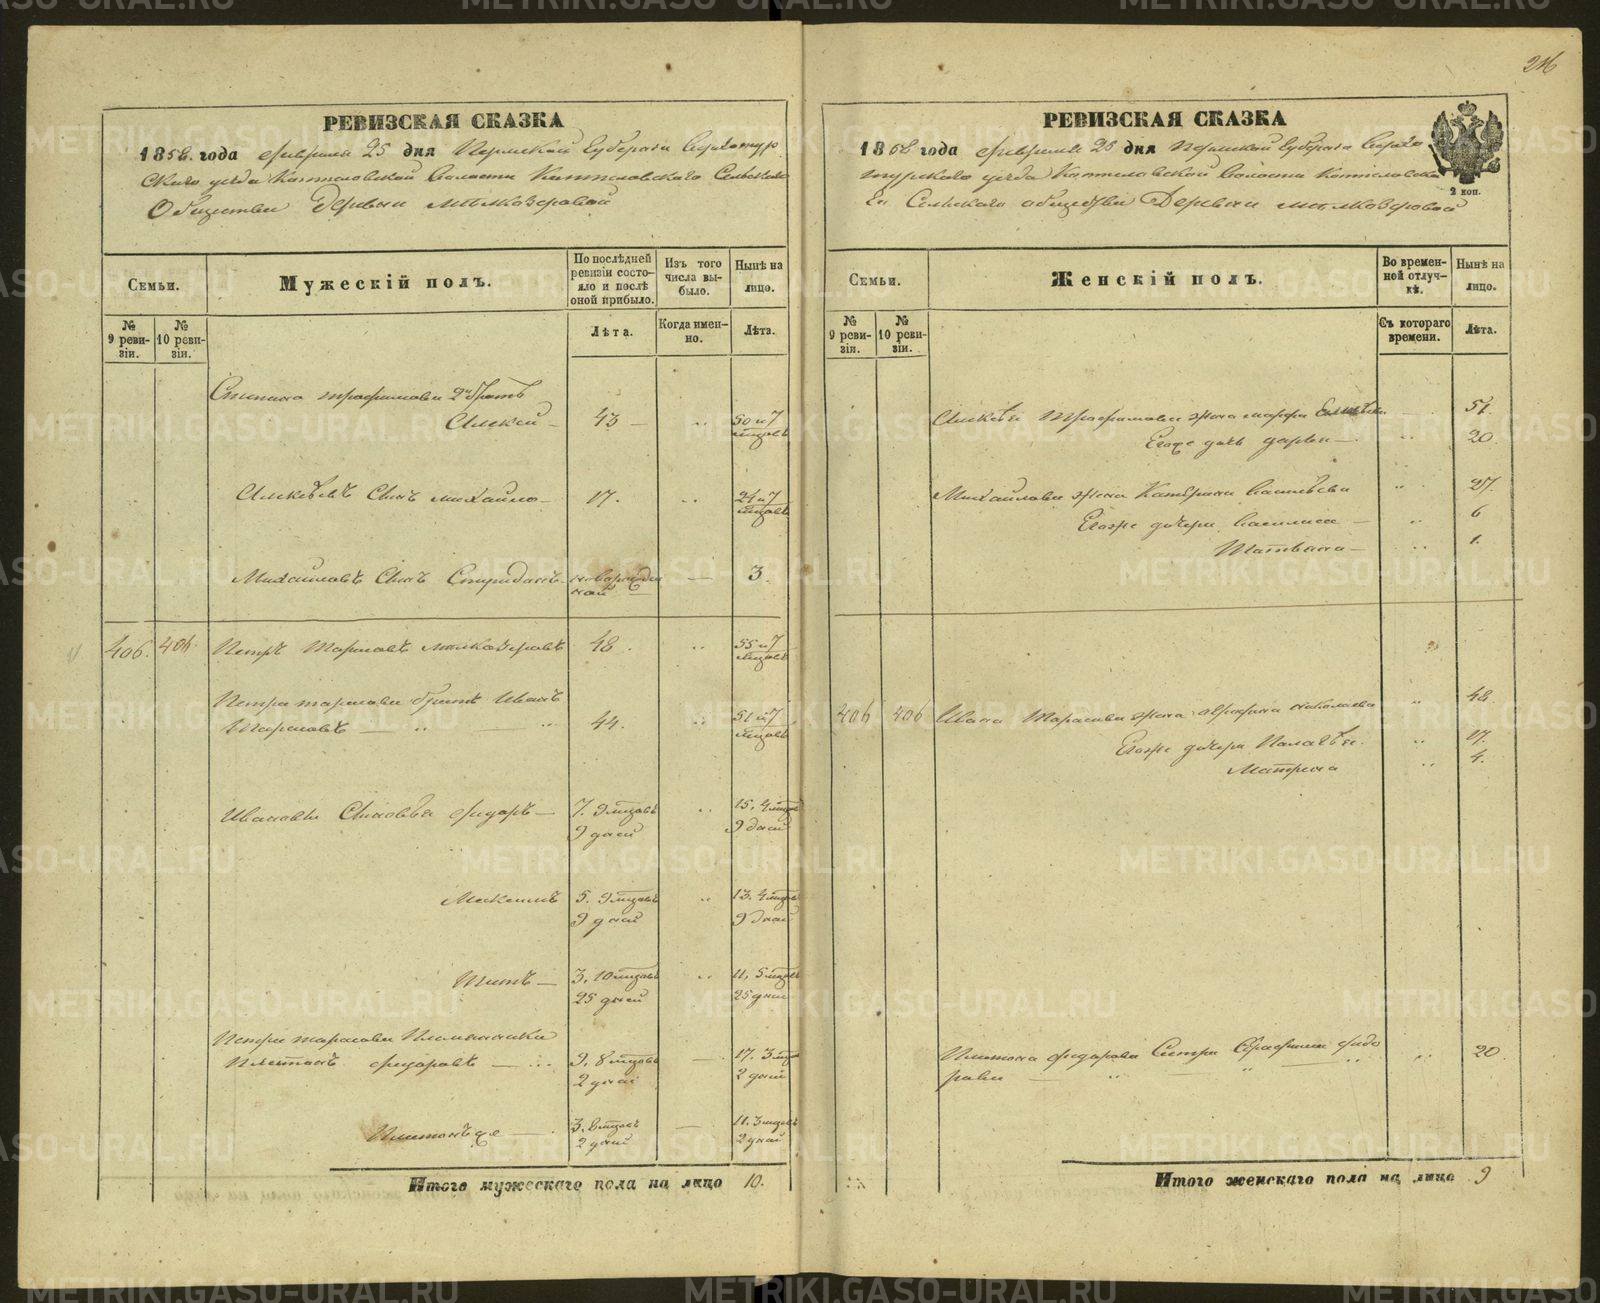 246
РЕВИЗСКАЯ СКАЗКА
1858. года февраля 25 дня Пермской Губернии Верхотур
скаго уезда Коптеловской Волости Коптеловскаго Сельскаго
Общества Деревни Мелкозеровой
Семьи.
Мужескій полъ.
По послѣдней ревизіи состояло и послѣ оной прибыло.
Изъ того числа выбыло.
Нынѣ на лицо.
№ 9 ревизіи.
№ 10 ревизіи.
Лѣта.
Когда именно.
Лѣта.
Трафимова 2й братъ
Алексей - 43 - " 50 и 7 мѣсяцовъ
Алексѣевъ Сынъ Михайло - 17. " 24 и 7 мѣсяцовъ
Михайловъ Сынъ Спиридонъ новорожденной — 3.
406. 406. Петръ Тарасовъ Мелкозеровъ 48. " 55 и 7 мѣсяцовъ
Петра Тарасова братъ Иванъ
Тарасовъ — " — " 44. " 51 и 7 мѣсяцовъ
Ивановы Сыновья Фидаръ — 7. 9 мѣсяцовъ 9 дней " 15. 4 мѣсяцовъ 9 дней
5. 9 мѣсяцовъ 9 дней " 13. 4 мѣсяцовъ 9 дней
Титъ — 3. 10 мѣсяцовъ 25 дней " 11. 5 мѣсяцовъ 25 дней
Петра Тарасова Племянники
Платонъ Фидаровъ — 9. 8 мѣсяцовъ 2 дней — 17. 3 мѣсяцовъ 2 дней
Платонъ же — 3. 8 мѣсяцовъ 2 дней — 11. 3 мѣсяцовъ 2 дней
Итого мужескаго пола на лицо 10.
РЕВИЗСКАЯ СКАЗКА
1858 года февраля 25 дня Пермской Губернии Верхо
турскаго уезда Коптеловской Волости Коптеловска
го Сельскаго общества Деревни Мелкозеровой
2 коп.
Семьи.
Женскій полъ.
Во временной отлучкѣ.
Нынѣ на лицо.
№ 9 ревизіи.
№ 10 ревизіи.
Съ котораго времени.
Лѣта.
Алексѣя Трафимова жена Марфа 51.
Егоже дочь Дарья — " 20.
Михайлова жена Катерина Васильева " 27.
Егоже дочери Василиса — " 6
Татьяна — " 1.
406 406 Ивана Тарасова жена Афросинья Николаева " 48.
Егоже дочери Палагѣя. " 17.
Матрена " 4.
Платона Фидарова Сестра Фидо
рова — " — " 20.
Итого женскаго пола на лицо 9
METRIKI.GASO-URAL.RU